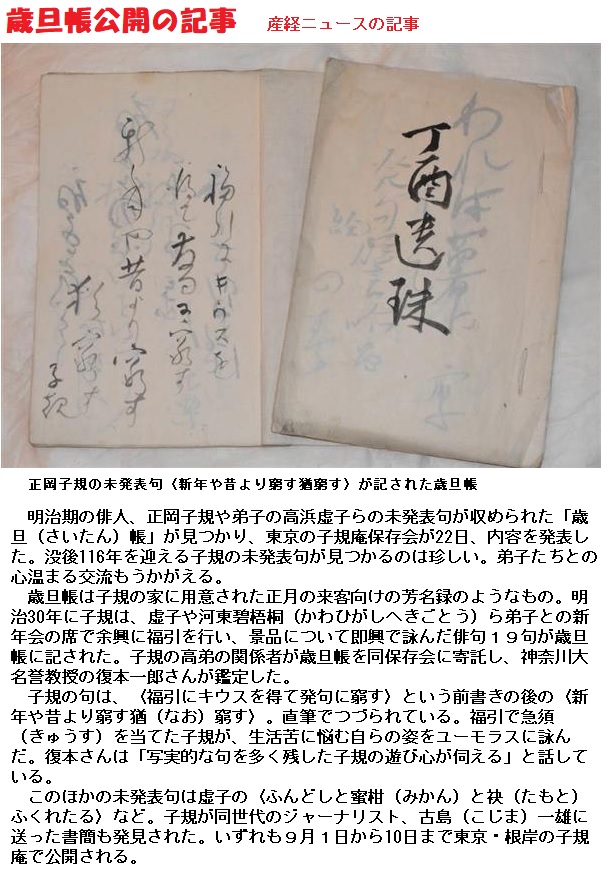 歳旦帳公開の記事 産経ニュースの記事
丁酉遺珠
福引にキウスを
得て発句に窮す
新年や昔より窮す
猶窮す
子規
正岡子規の未発表句〈新年や昔より窮す猶窮す〉が記された歳旦帳
明治期の俳人、正岡子規や弟子の高浜虚子らの未発表句が収められた「歳
旦（さいたん）帳」が見つかり、東京の子規庵保存会が22日、内容を発表し
た。没後116年を迎える子規の未発表句が見つかるのは珍しい。弟子たちとの
心温まる交流もうかがえる。
歳旦帳は子規の家に用意された正月の来客向けの芳名録のようなもの。明
治30年に子規は、虚子や河東碧梧桐（かわひがしへきごとう）ら弟子との新
年会の席で余興に福引を行い、景品について即興で詠んだ俳句１９句が歳旦
帳に記された。子規の高弟の関係者が歳旦帳を同保存会に寄託し、神奈川大
名誉教授の復本一郎さんが鑑定した。
子規の句は、〈福引にキウスを得て発句に窮す〉という前書きの後の〈新
年や昔より窮す猶（なお）窮す〉。直筆でつづられている。福引で急須
（きゅうす）を当てた子規が、生活苦に悩む自らの姿をユーモラスに詠ん
だ。復本さんは「写実的な句を多く残した子規の遊び心が伺える」と話して
いる。
このほかの未発表句は虚子の〈ふんどしと蜜柑（みかん）と袂（たもと）
ふくれたる〉など。子規が同世代のジャーナリスト、古島（こじま）一雄に
送った書簡も発見された。いずれも９月１日から10日まで東京・根岸の子規
庵で公開される。